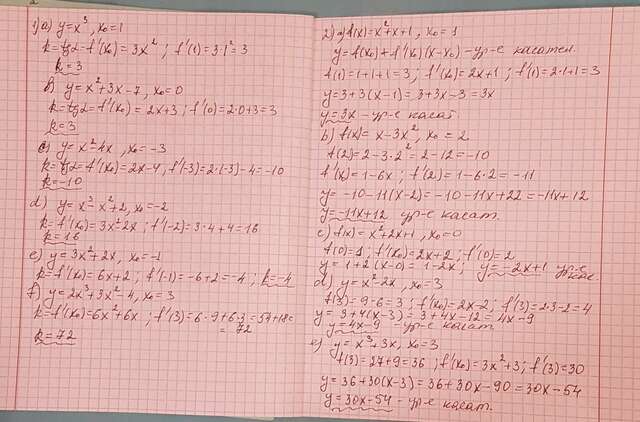 1) a) y=x³, x₀=1
k=tgα=f'(x₀)=3x²; f'(1)=3·1²=3
k=3
b) y=x²+3x-7, x₀=0
k=tgα=f'(x₀)=2x+3; f'(0)=2·0+3=3
k=3
c) y=x²-4x, x₀=-3
k=tgα=f'(x₀)=2x-4, f'(-3)=2·(-3)-4=-10
k=-10
d) y=x³-x²+2, x₀=-2
k=f'(x₀)=3x²-2x; f'(-2)=3·4+4=16
k=16
e) y=3x²+2x, x₀=-1
k=f'(x₀)=6x+2; f'(-1)=-6+2=-4; k=-4
f) y=2x³+3x²-4, x₀=3
k=f'(x₀)=6x²+6x; f'(3)=6·9+6·3=54+18=
=72
k=72
2) a) f(x)=x²+x+1, x₀=1
y=f(x₀)+f'(x₀)(x-x₀) - ур-е касател.
f(1)=1+1+1=3; f'(x₀)=2x+1; f'(1)=2·1+1=3
y=3+3(x-1)=3+3x-3=3x
y=3x - ур-е касат.
b) f(x)=x-3x², x₀=2
f(2)=2-3·2²=2-12=-10
f'(x)=1-6x; f'(2)=1-6·2=-11
y=-10-11(x-2)=-10-11x+22=-11x+12
y=-11x+12 ур-е касат.
c) f(x)=x²+2x+1, x₀=0
f(0)=1; f'(x₀)=2x+2; f'(0)=2
y=1+2(x-0)=1-2x; y=-2x+1 ур-е
кас.
d) y=x²-2x, x₀=3
f(3)=9-6=3; f'(x₀)=2x-2; f'(3)=2·3-2=4
y=3+4(x-3)=3+4x-12=4x-9
y=4x-9 - ур-е касат.
e) y=x³+3x, x₀=3
f(3)=27+9=36; f'(x₀)=3x²+3; f'(3)=30
y=36+30(x-3)=36+30x-90=30x-54
y=30x-54 - ур-е касат.